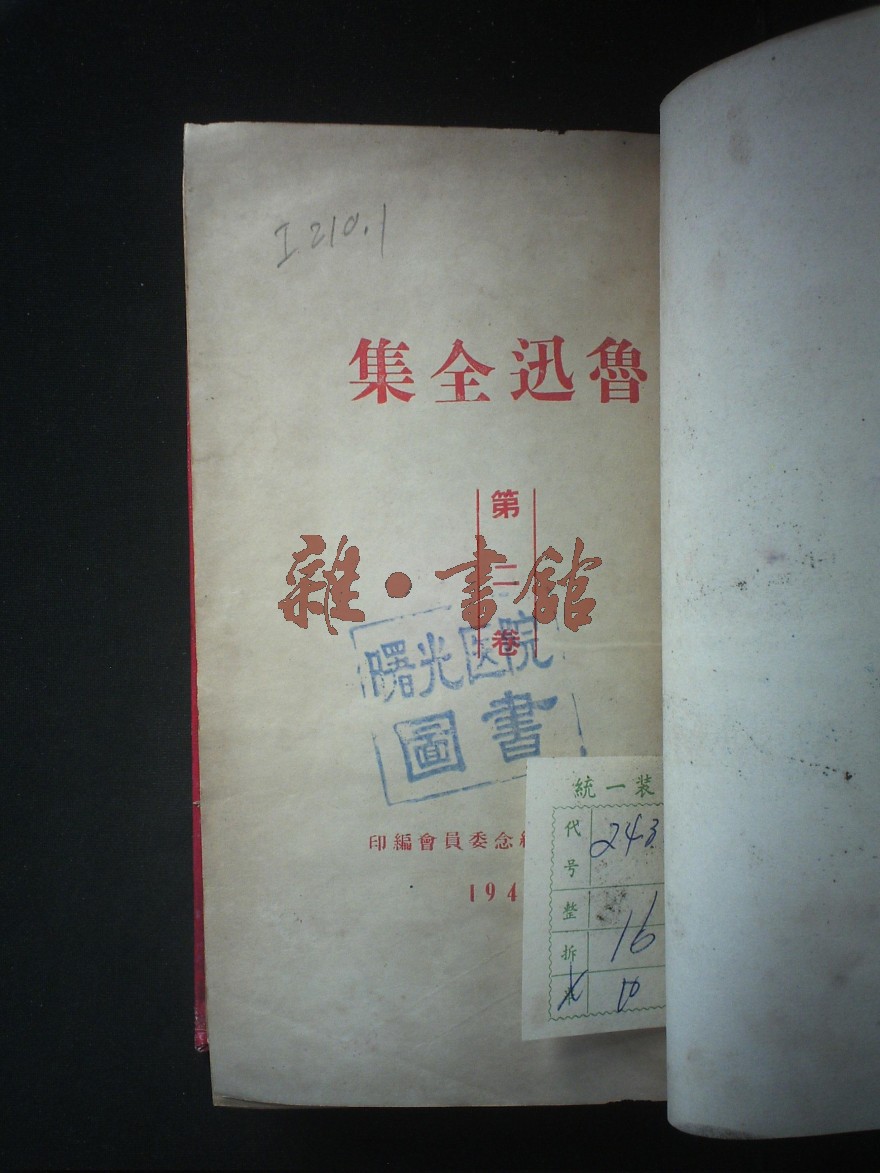 I210.1
魯迅全集
第二卷
雜·書館
曙光医院
圖書
念委員會編印
194
統一装
代号 243
整 16
拆
10